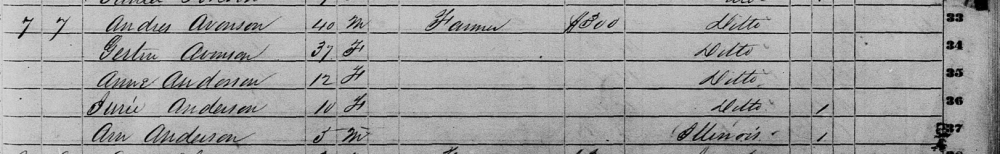 7 7 Andres Avonson 40 M Farmer $300 Ditto 33
Gertru Avonson 37 F Ditto 34
Anne Anderson 12 F Ditto 35
Anderson 10 F Ditto 1 36
Arn Anderson 5 M Illinois 1 37